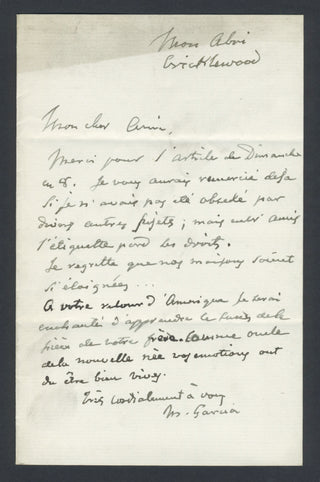 Mon Abri
Cricklewood
Mon cher Ami,
Merci pour l'article de Dimanche
en 8. Je vous aurais remercié déjà
si je n'avais pas été obsédé par
divers autres sujets; mais entre amis
l'étiquette perd ses droits.
Je regrette que nos maisons soient
si éloignées...
A votre retour d'Amérique je serai
enchanté d'apprendre le succès de la
pièce de votre
de la nouvelle née vos émotions ont
du être bien vives.
Très cordialement à vous
M. Garcia